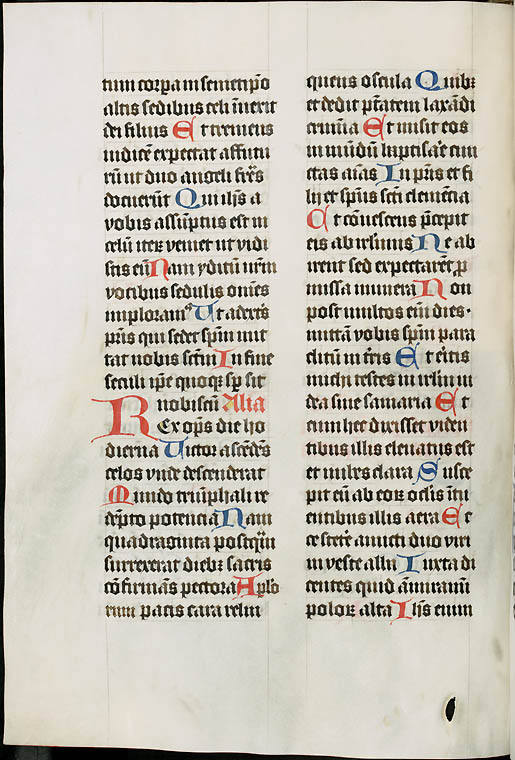 tum corpa in semetip̄o
altis sedibus celi īuexit
dei filius Et tremens
iudicē expectat affutu
rū ut duo angeli frēs
docuerūt Qui ilis a
vobis assūptus est in
celū iterꝫ veniet ut vidi
stis eū Nam yditū nr̄m
votibus sedulis om̄es
imploram⁹ Ut ad exēs
pr̄is qui sedet spm̄ mit
tat nobis sc̄tm In fine
seculi ip̄e quoqꝫ sp̄ sit
nobiscū Alia
Rex op̄s die ho
dierna Victor ascēdēs
celos vnde descenderat
Mundo triūphali re
dēpto potencia Nam
quadraginta postqͣm
surrexerat diebꝫ sacris
cōfirmās pectora Aplo
rum pacis cara relin
quens oscula Quibꝫ
et dedit pt̄atem laxādi
crimīa Et misit eos
in mūdū baptisare cun
ctas aīas In pr̄is et fi
lij et spūs sc̄ti clemēcia
Et cōuescens p̄cepit
eis ab ierlimis Ne ab
irent sed expectarēt p̱
missa munera Non
post multos eīm dies·
mittā vobis spm̄ para
clitū in tr̄is Et eritis
michi testes in irlm̄ iu
dea siue samaria Et
cum hec dixisset viden
tibus illis eleuatus est
et nubes clara Susce
pit eū ab eoꝝ oc̄lis ītu
entibus illis aera Et
ecce steterē amicti duo viri
in veste alba Iuxta di
centes quid āmiramī
poloꝝ alta Ihs̄ enim